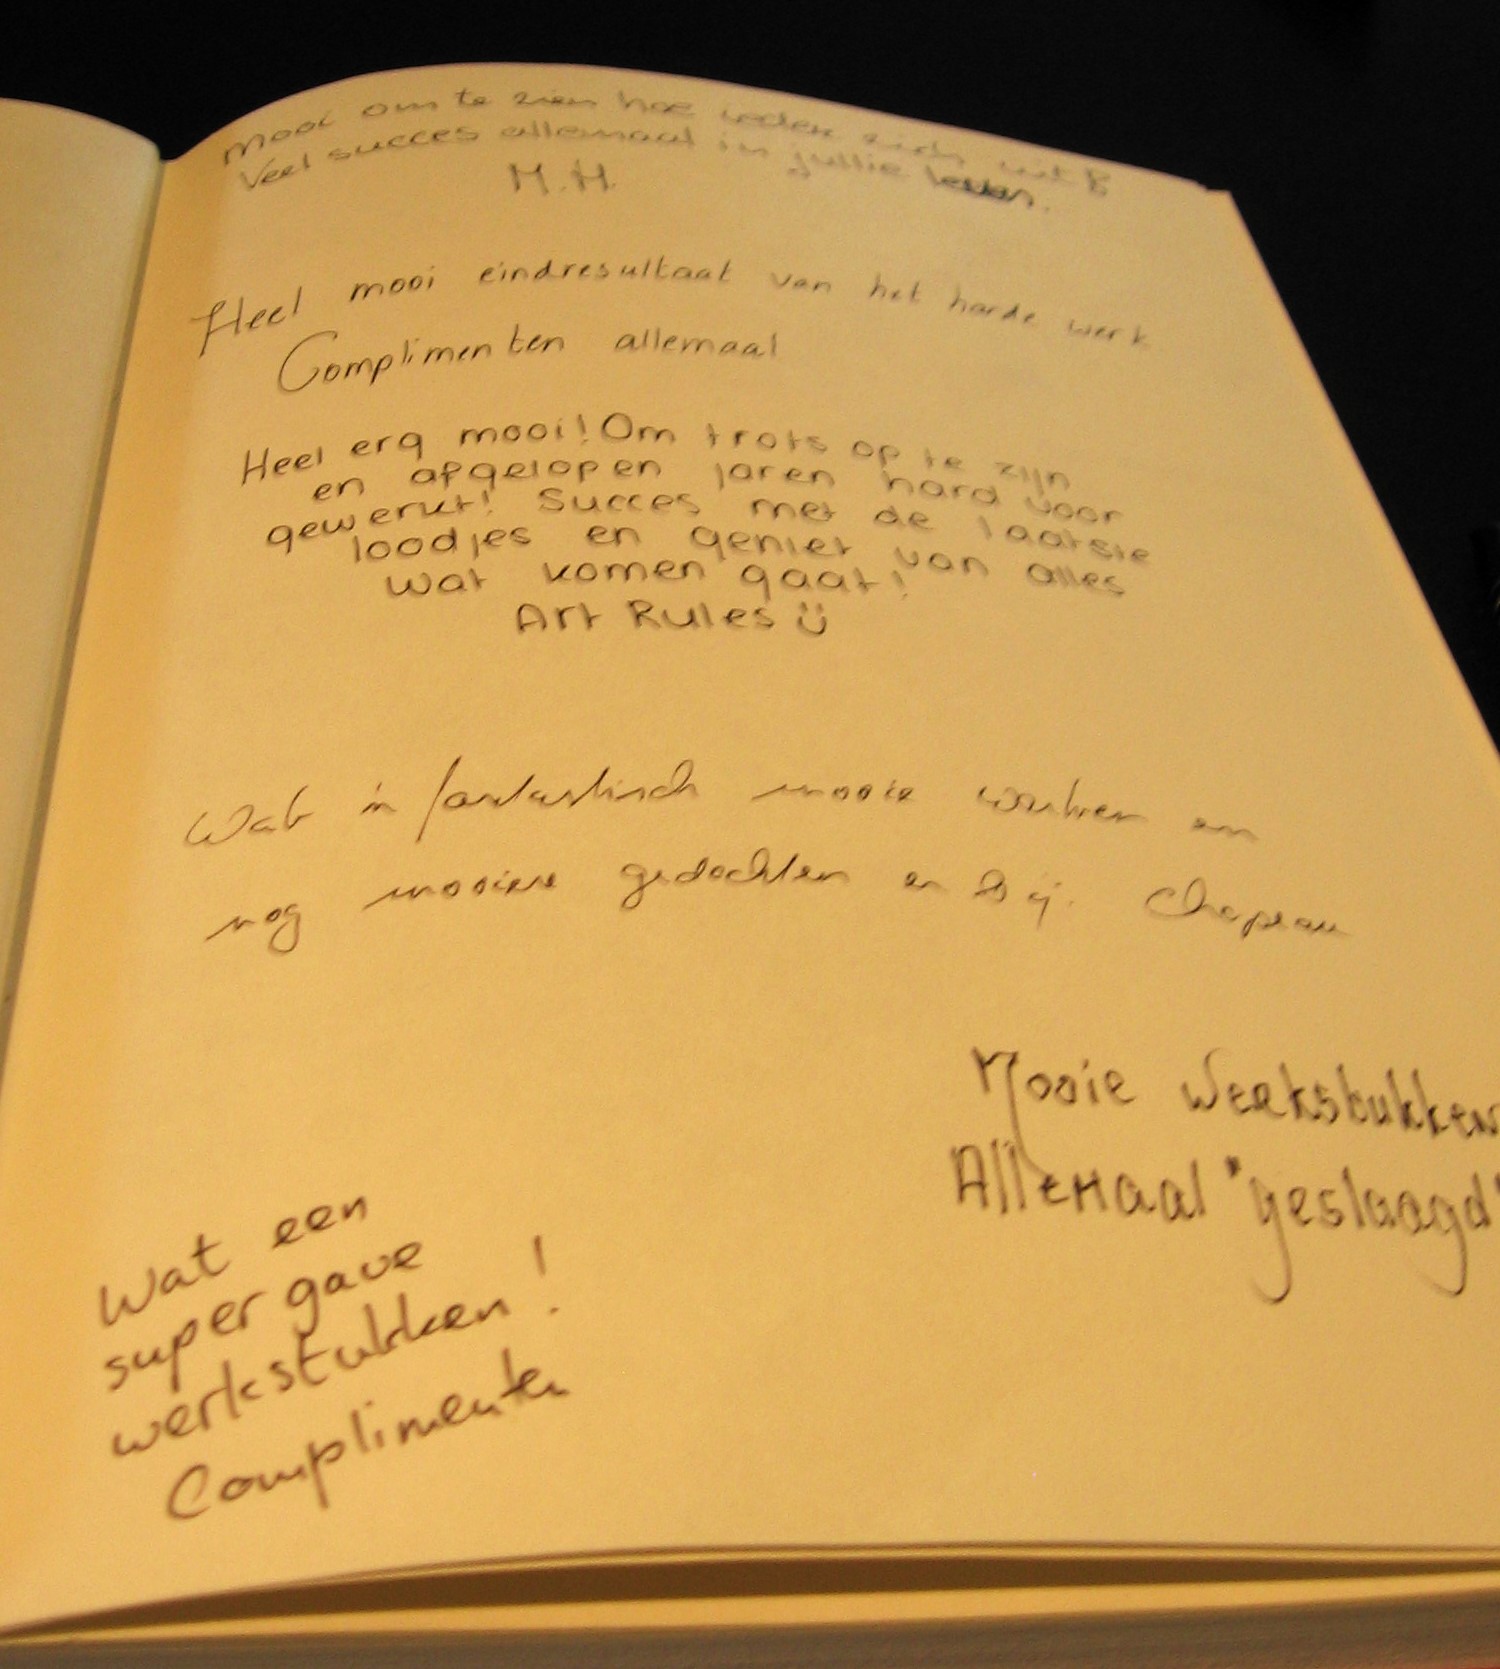 Mooi om te zien hoe ieder zich uit
Veel succes allemaal in jullie leven.
M.H.
Heel mooi eindresultaat van het harde werk
Complimenten allemaal
Heel erg mooi! Om trots op te zijn
en afgelopen jaren hard voor
gewerkt! Succes met de laatste
loodjes en geniet van alles
wat komen gaat!
Art Rules ☺
Wat 'n fantastisch mooie werken en
nog mooiere gedachten er bij. Chapeau
Mooie Weekstukken
Allemaal "geslaagd"
Wat een
super gave
werkstukken!
Complimenten